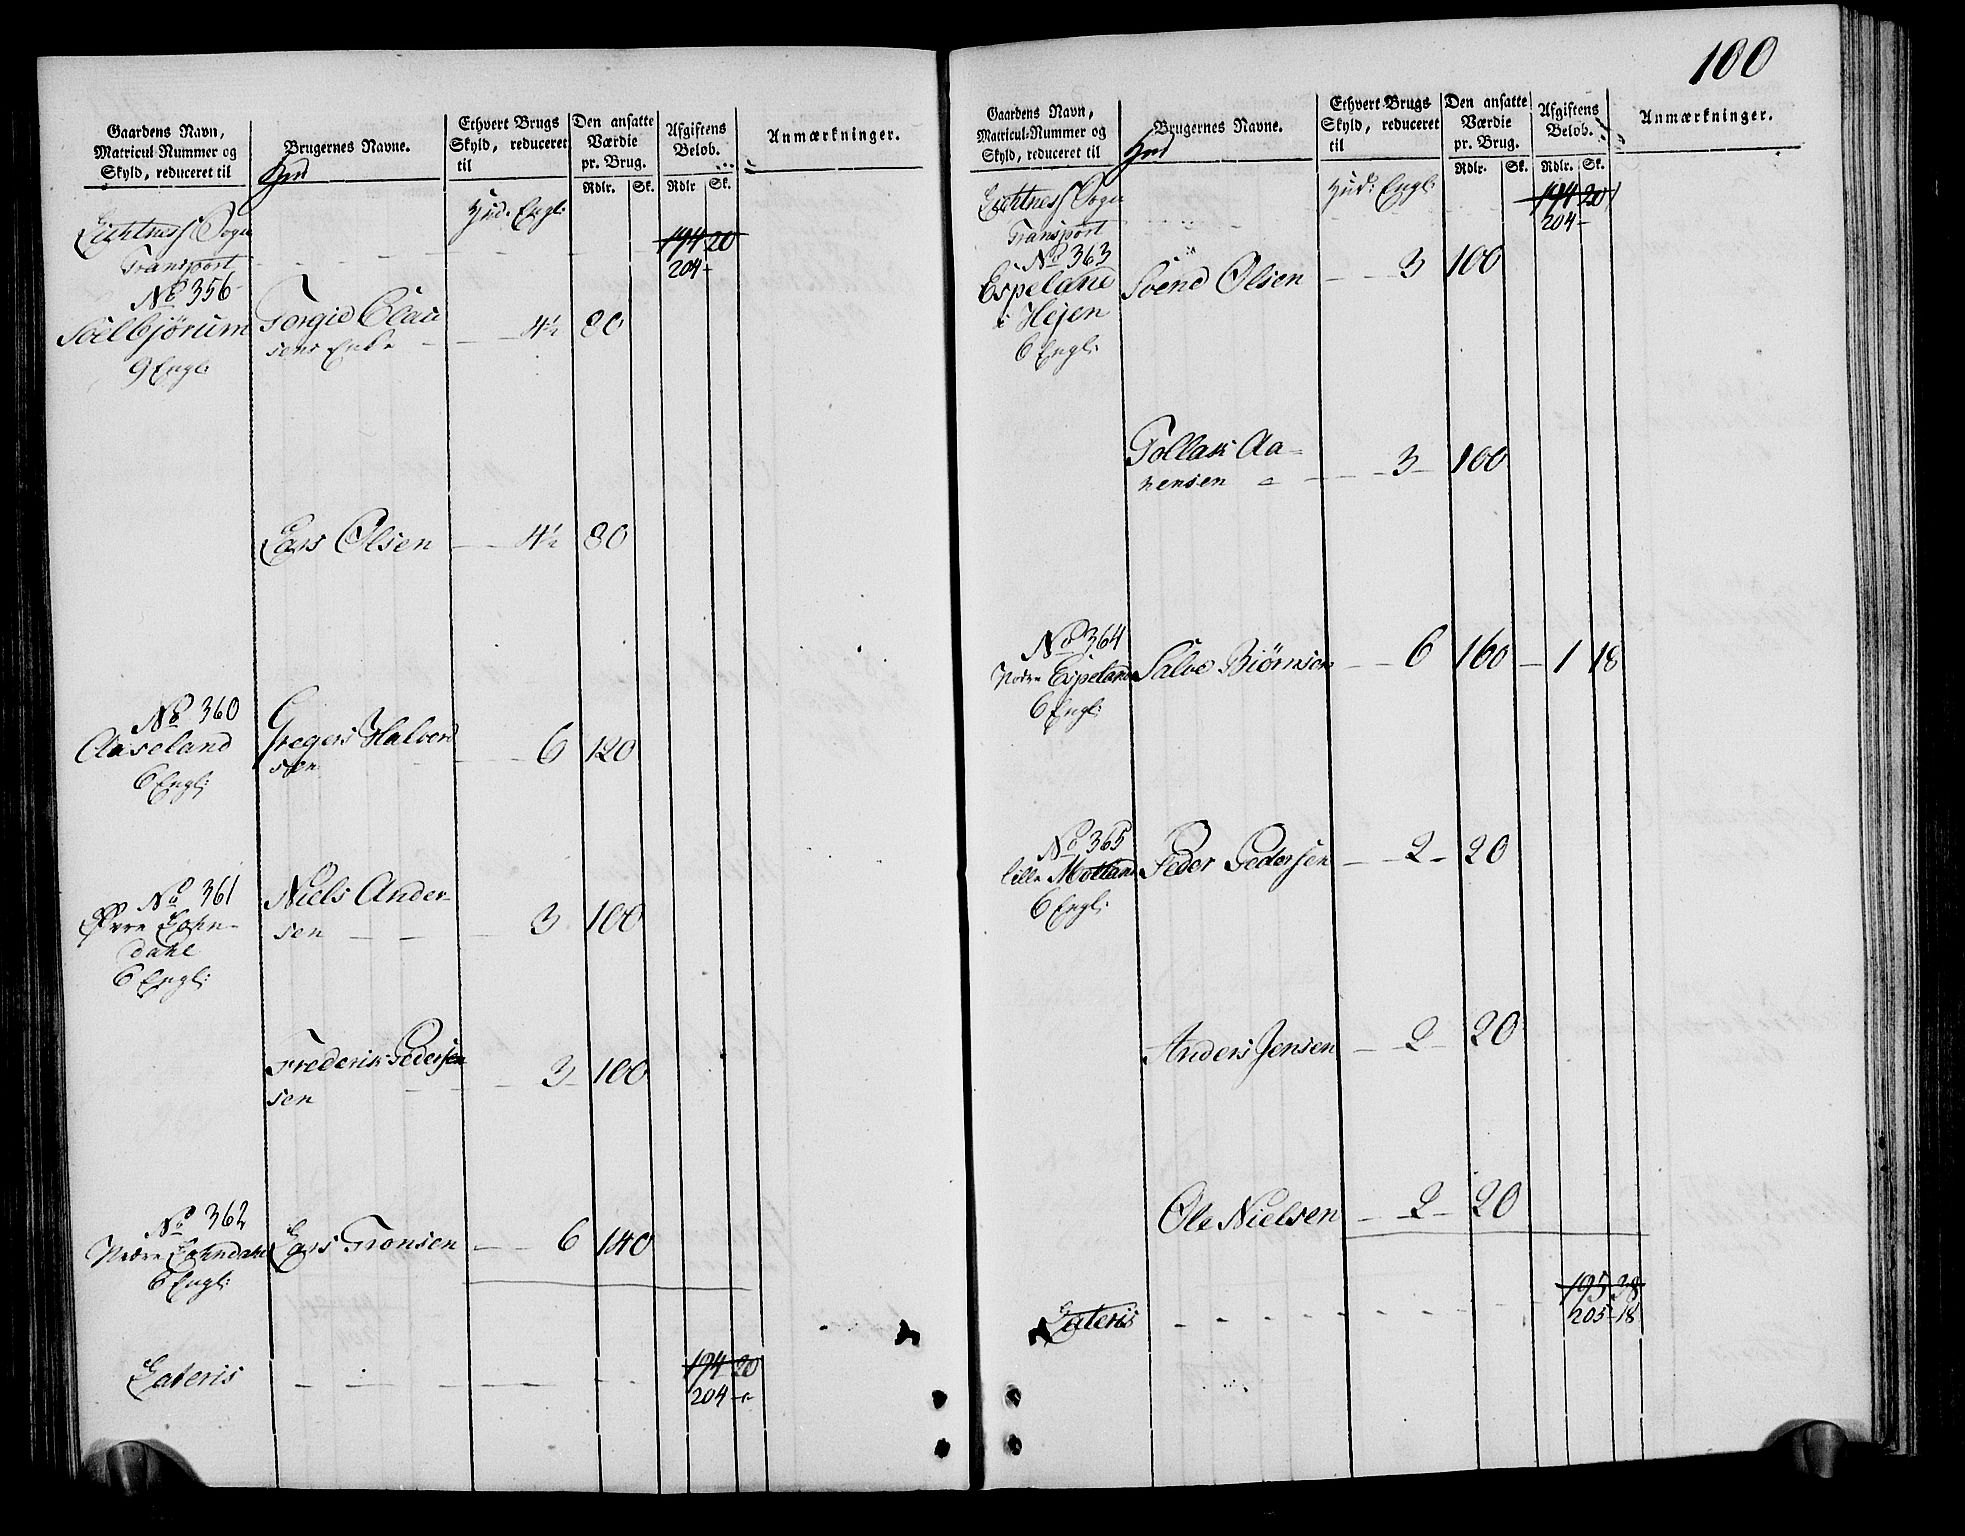 Gaardens Navn,
Matricul-Nummer og
Skyld, reduceret til
Hud
Brugernes Navne.
Ethvert Brugs
Skyld, reduceret
til
Den ansatte
Værdie
pr. Brug.
Rdlr. Sk.
Afgiftens
Belob.
Rdlr Sk.
Anmærkninger.
Hud: Engl:
Sogn
Transport - - - 194 20
204 -
No 356
Soelbjørum Torgid Clau
sens Enke - 4½ 80
9 Engl:
Lars Olsen - 4½ 80
No 360
Aaseland Gregers Halvord
sen - 6 120
6 Engl:
No 361
Øvre Niels Ander-
sen - 3 100
dahl
6 Engl:
Frederik Pedersen
sen - 3 100
No 362
Nedre Lars Tronsen - 6 140
6 Engl:
Lateris - - - 194 20
204 -
100
Gaardens Navn,
Matricul-Nummer og
Skyld, reduceret til
Hud
Brugernes Navne.
Ethvert Brugs
Skyld, reduceret
til
Den ansatte
Værdie
pr. Brug.
Rdlr. Sk.
Afgiftens
Belob.
Rdlr. Sk.
Anmærkninger.
Hud: Engl:
Sogn
Transport 194 20
204 -
No 363
Espeland Svend Olsen - 3 100
i Hejen
6 Engl:
Tollak Aa-
nensen - 3 - 100
No 364
Nedre Espeland Salve Biørnsen - 6 160 - 1 18
6 Engl:
No 365
Lille Motland Peder Pedersen - 2 - 20
6 Engl:
Anders Jensen - 2 - 20
Ole Nielsen - 2 - 20
Lateris - - - 195 38
205 - 18